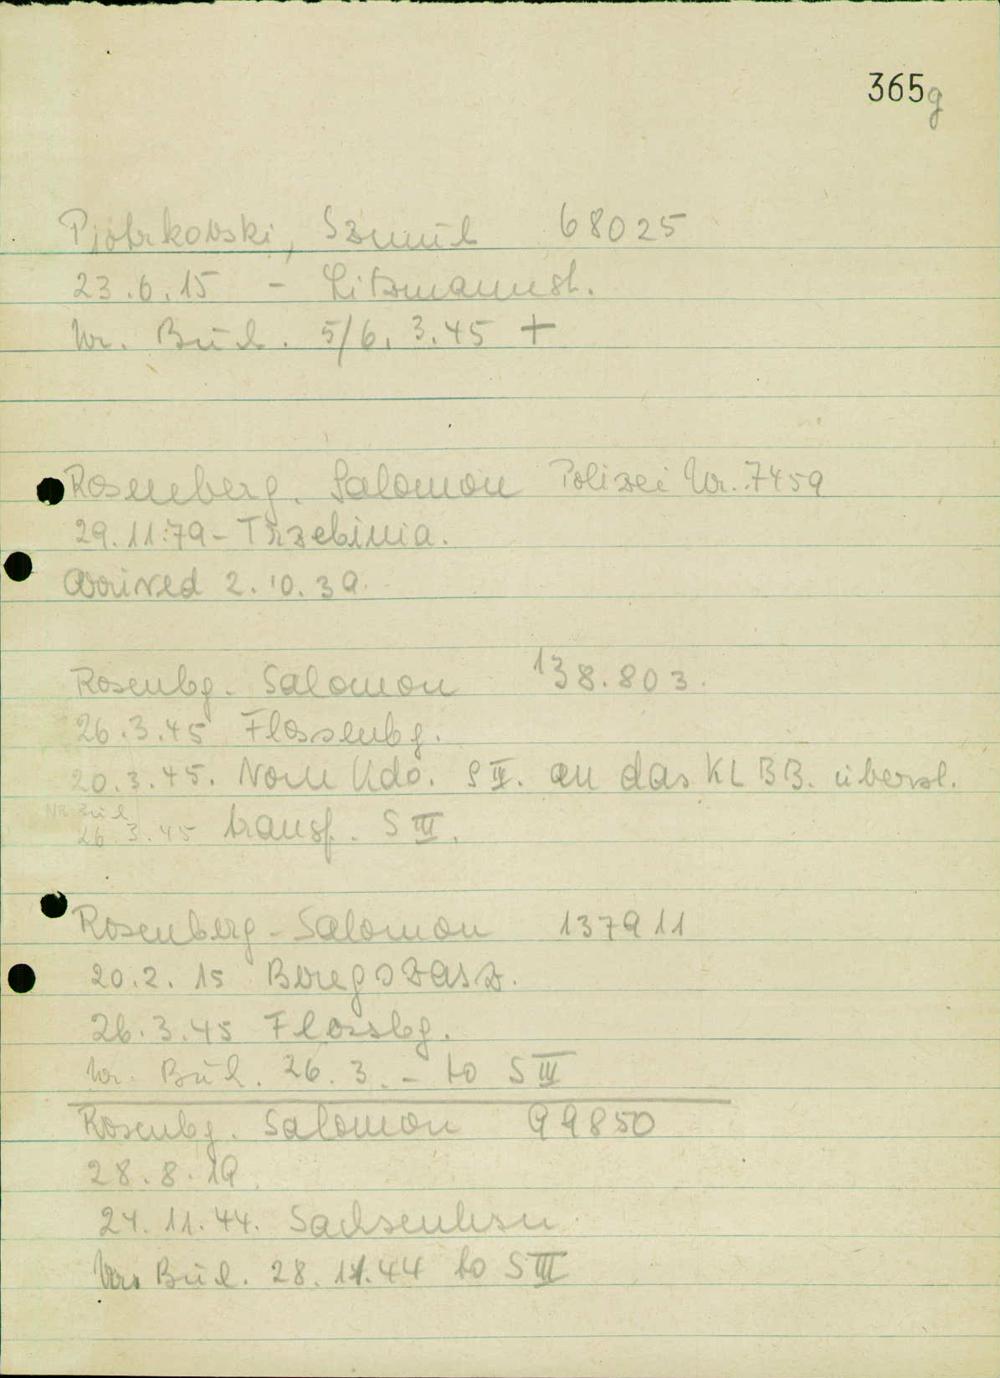 365g
Pjotrkowski, Szmul 68025
23.6.15 - Litzmannst.
Nr. Büch. 5/6. 3.45 +
Rosenberg. Salomon Polizei Nr. 7459
29.11.79 - Trzebinia.
Arrived 2.10.39.
Rosenbg. Salomon 138.803.
26.3.45 Flossenbg.
20.3.45. Vom Kdo. S III. an das KL BB. überst.
Nr Büch
26.3.45 transf. S III.
Rosenberg - Salomon 137911
20.2.15 Beregszasz.
26.3.45 Flossbg.
Nr. Büch. 26.3. - to S III
Rosenbg. Salomon 99850
28.8.19.
24.11.44. Sachsenhsn
Nr. Büch. 28.11.44 to S III